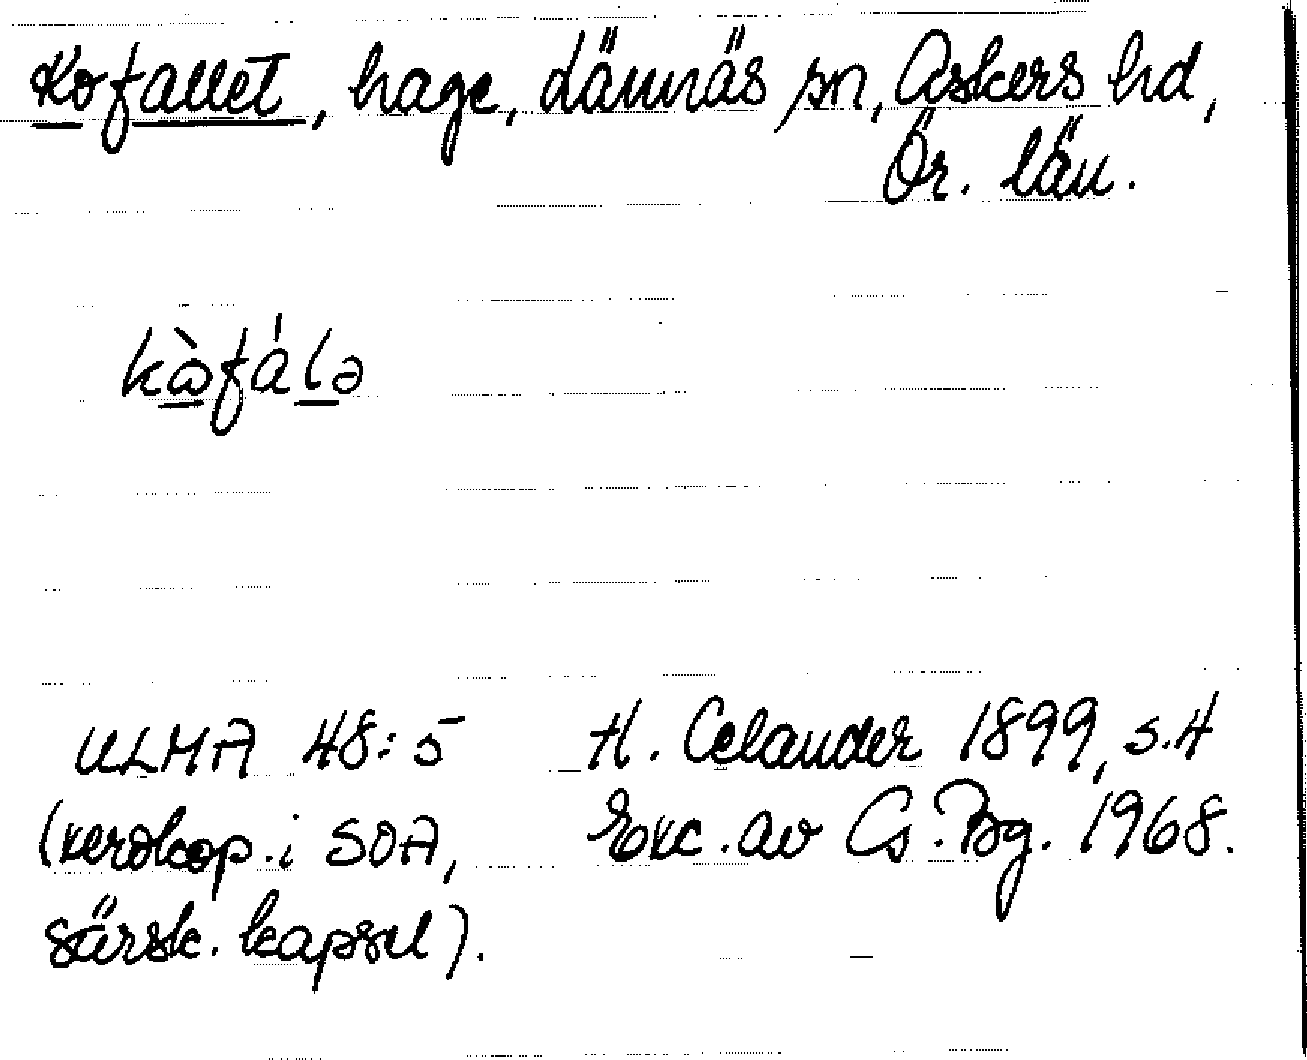 Kofallet, hage, Lännäs sn, Askers hd,
Ör. län.
kòfálə
ULMA 48:5 H. Celander 1899, s.4
(xeroxkop. i SOA, Exc. av Cs. Bg. 1968.
särsk. kapsel).